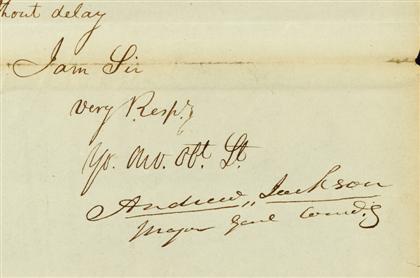 without delay
I am Sir
very Resp.y
Yr. Mo. Obt. St.
Andrew Jackson
Major Genl Comdg